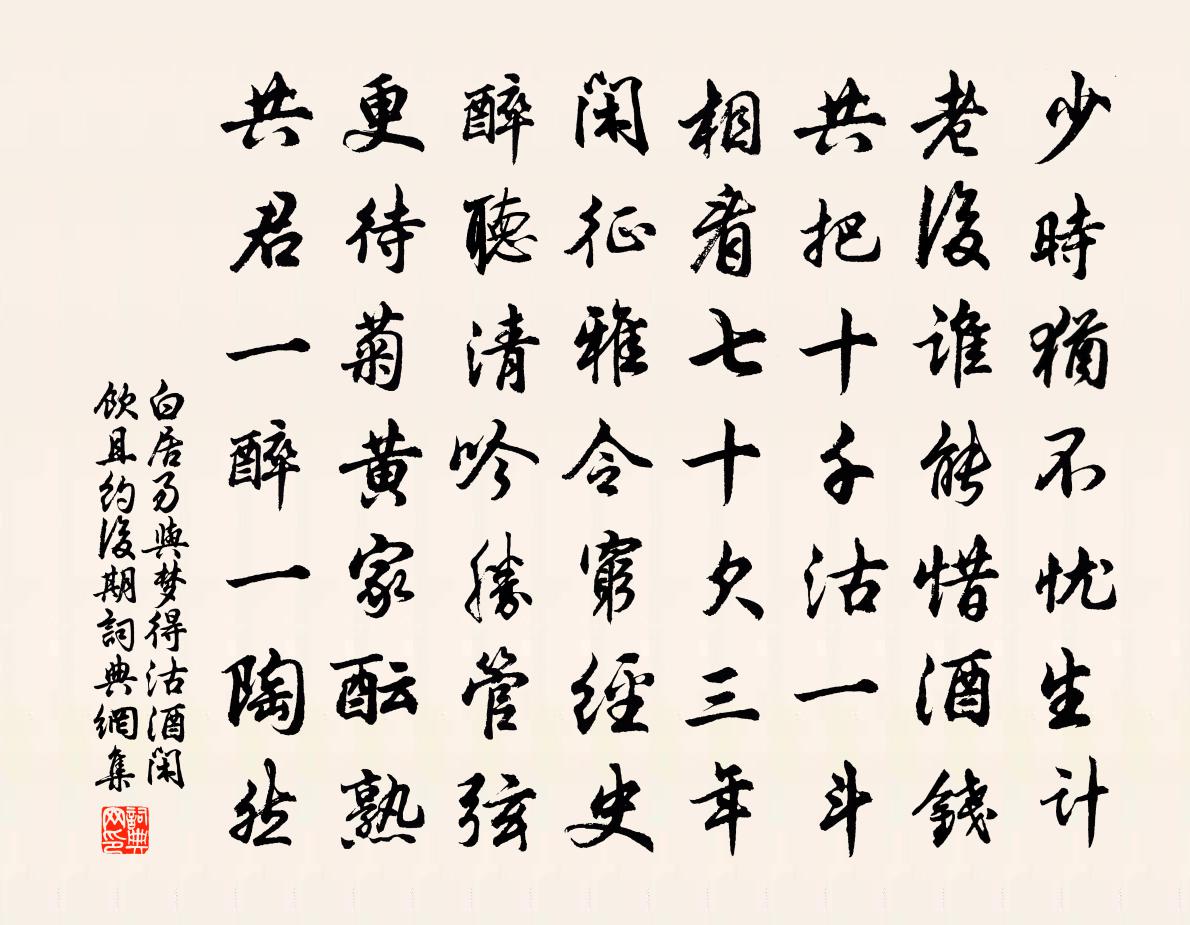 少時猶不忧生计
老後谁能惜酒錢
共把十千沽一斗
相看七十欠三年
闲征雅令窮經史
醉聽清吟勝管弦
更待菊黄家酝熟
共君一醉一陶然
白居易與梦得沽酒闲
飲且约後期詞典網集
詞典
网印